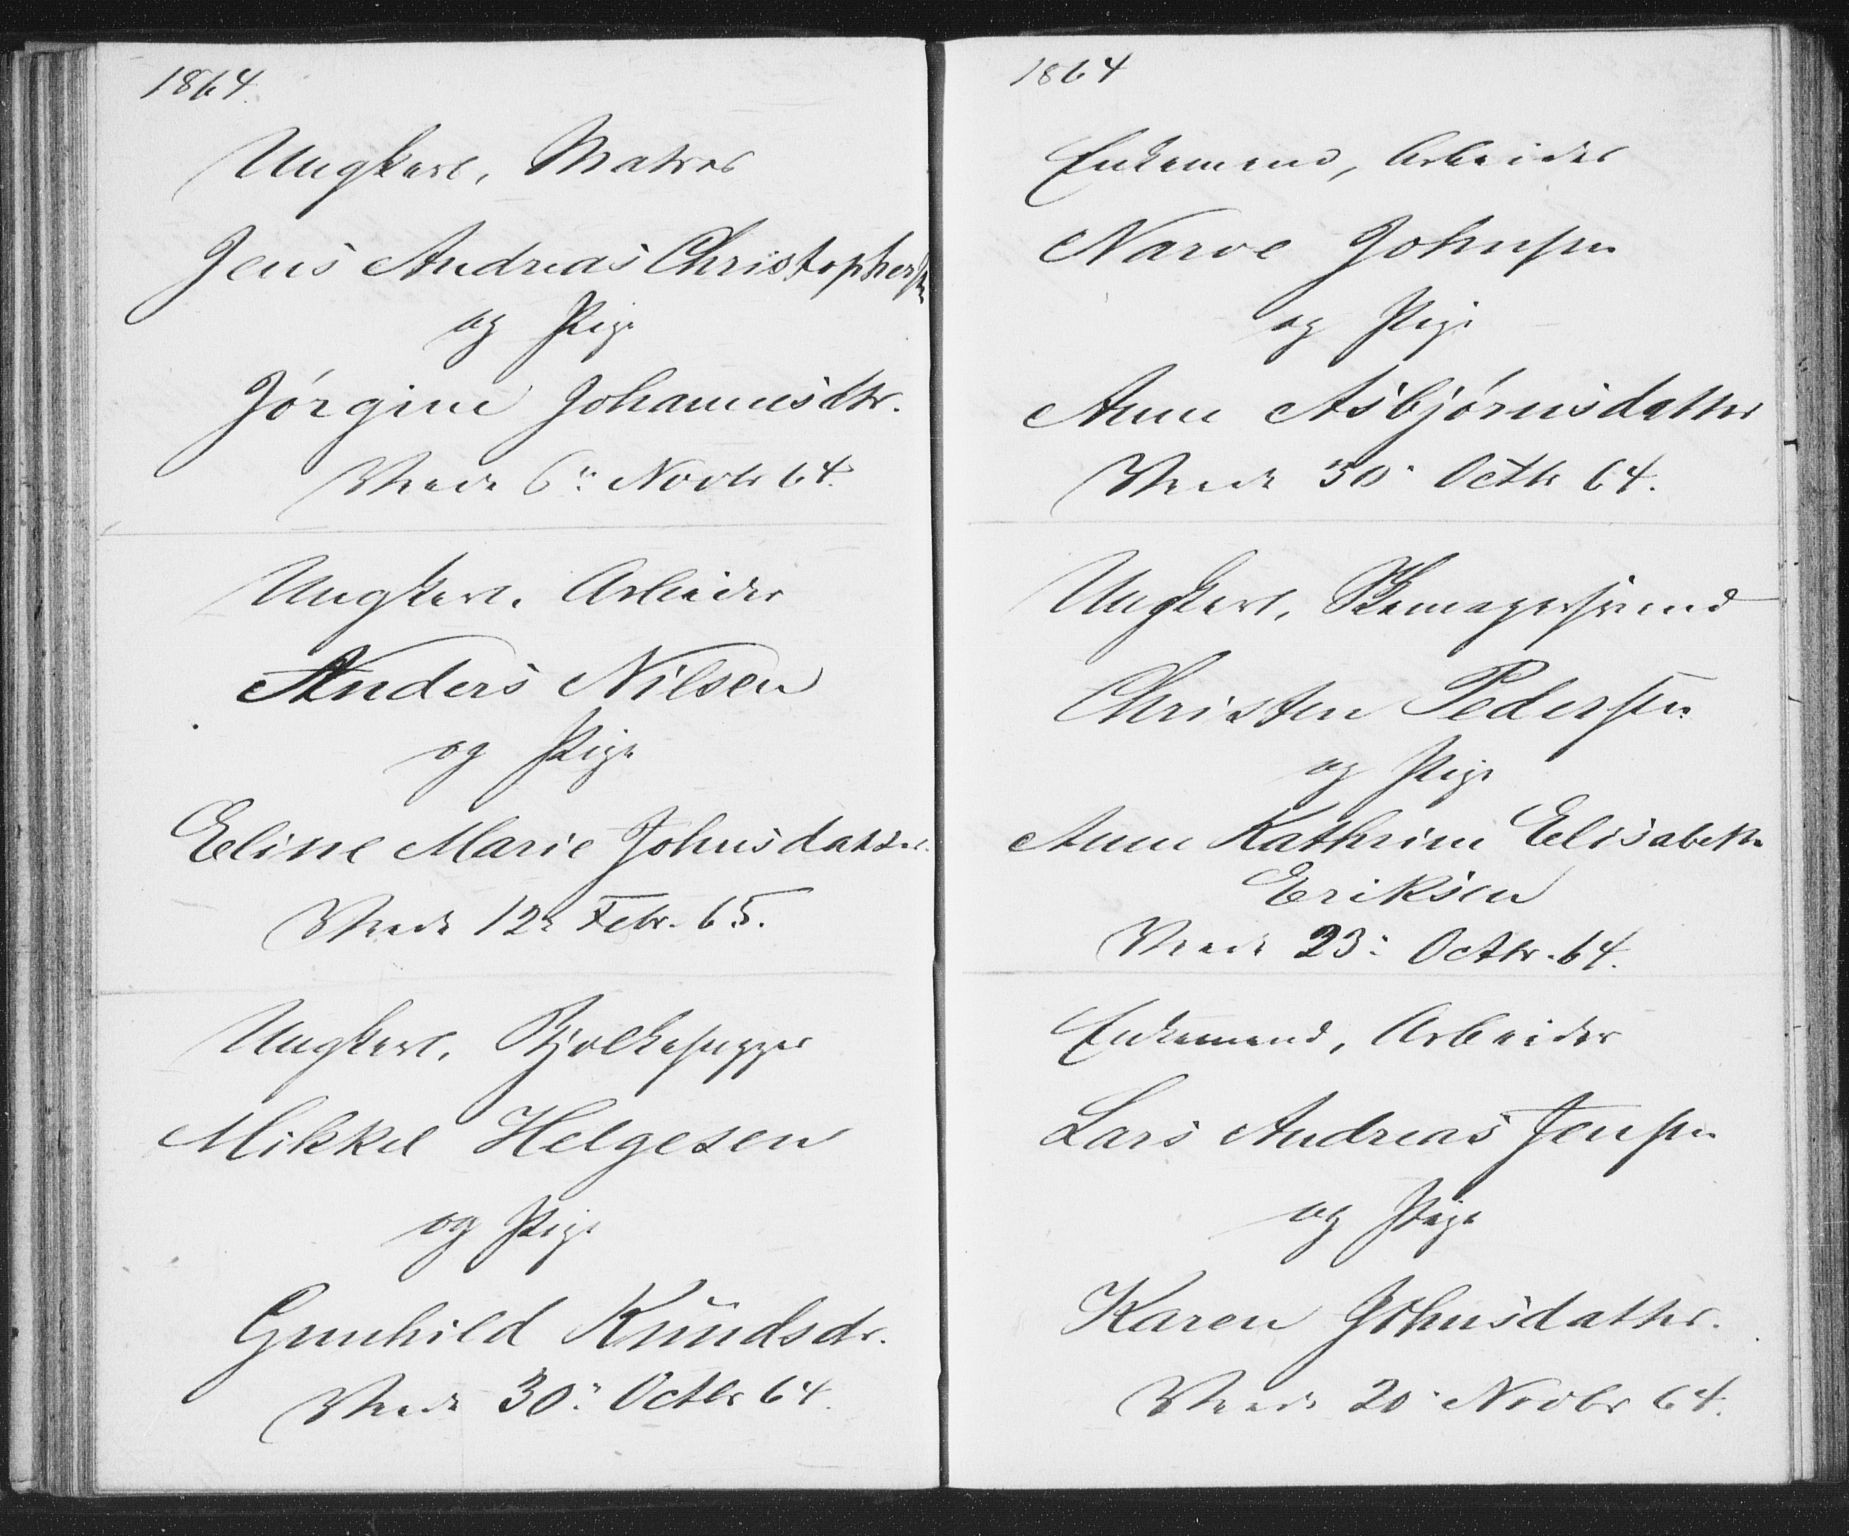 1864.
Ungkarl, Matros
Jens Andreas Christophersen
og Pige
Jørgine Johannesdtr.
Viede 6: Novbr 64.
Ungkarl, Arbeider
Anders Nilsen
og Pige
Eline Marie Johnsdatter.
Viede 12e Febr. 65.
Ungkarl, Bjelkehugger
Mikkel Helgesen
og Pige
Gunhild Knudsdr.
Viede 30: Octbr 64.
1864
Enkemand, Arbeider
Narve Johnsen
og Pige
Anne Asbjørnsdatter
Viede 30: Octbr 64.
Ungkarl,
Christen Pedersen
og Pige
Anne Kathrine Elisabeth
Eriksen
Viede 23: Octbr. 64.
Enkemand, Arbeider
Lars Andreas Jensen
og Pige
Karen Johnsdatter.
Viede 20 Novbr 64.